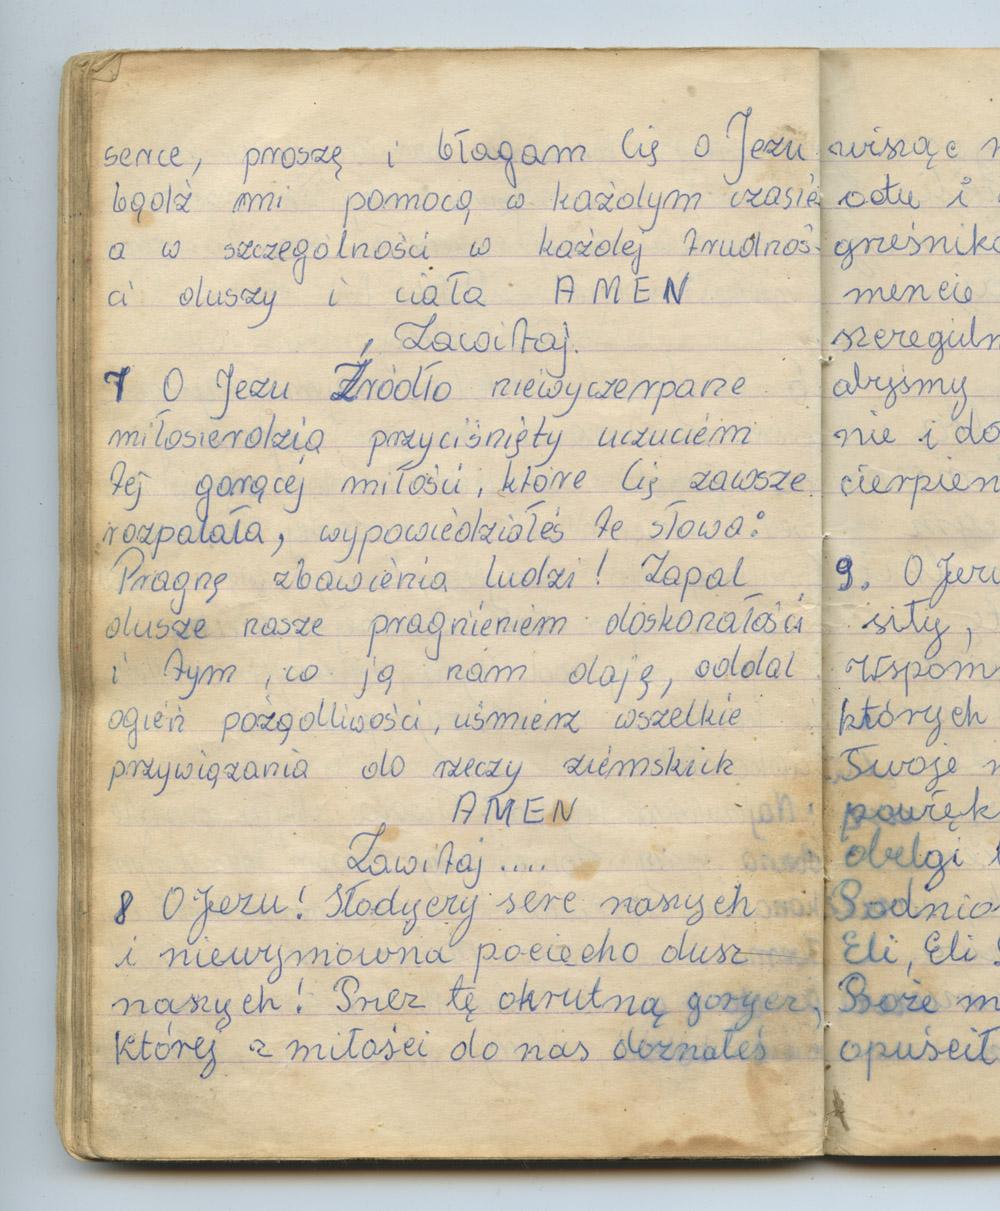 serce, proszę i błagam Cię o Jezu
bądź mi pomocą w każdym czasie
a w szczególności w każdej trudnoś-
ci duszy i ciała AMEN
Zawitaj.
7 O Jezu Źródło niewyczerpane
miłosierdzia przyciśnięty uczuciem
tej gorącej miłości, które Cię zawsze
rozpalała, wypowiedziałeś te słowa:
Pragnę zbawienia ludzi! Zapal
dusze nasze pragnieniem doskonałości
i tym, co ją nam dają, oddal
ogień pożądliwości, uśmierz wszelkie
przywiązania do rzeczy ziemskiik
AMEN
Zawitaj ....
8 O Jezu! Słodyczy serc naszych
i niewymowna pociecho dusz
naszych! Przez tę okrutną gorycz,
której z miłości do nas doznałeś
wisząc
octu i
grześnik
mencie
szczególn
abyśmy
nie i do
cierpien
9. O Jezu
siły,
Wspom
których
Twoje
powięk
obelgi
Podnio
Eli, Eli
Boże m
opuścił